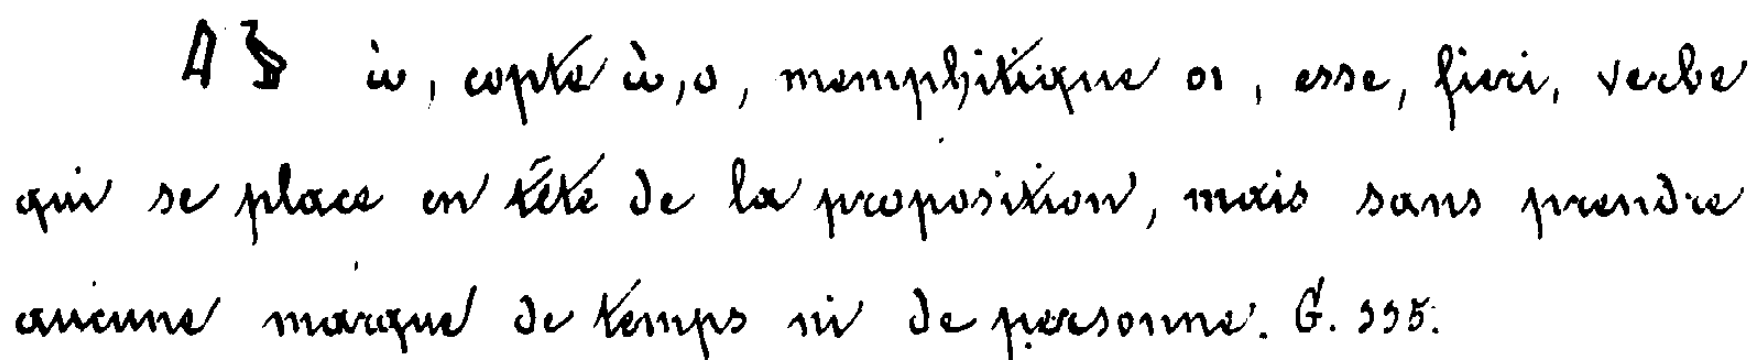 𓇋𓅱 ὼ, copte ὼ, o, memphitique oı, esse, fieri, verbe
qui se place en tête de la proposition, mais sans prendre
aucune marque de temps ni de personne. G. 335.